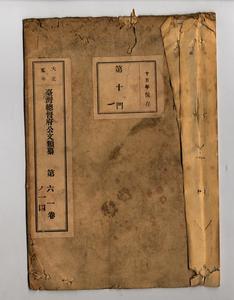 十五年保存
第十門
大正
臺灣總督府公文類纂
第六一卷
ノ一四